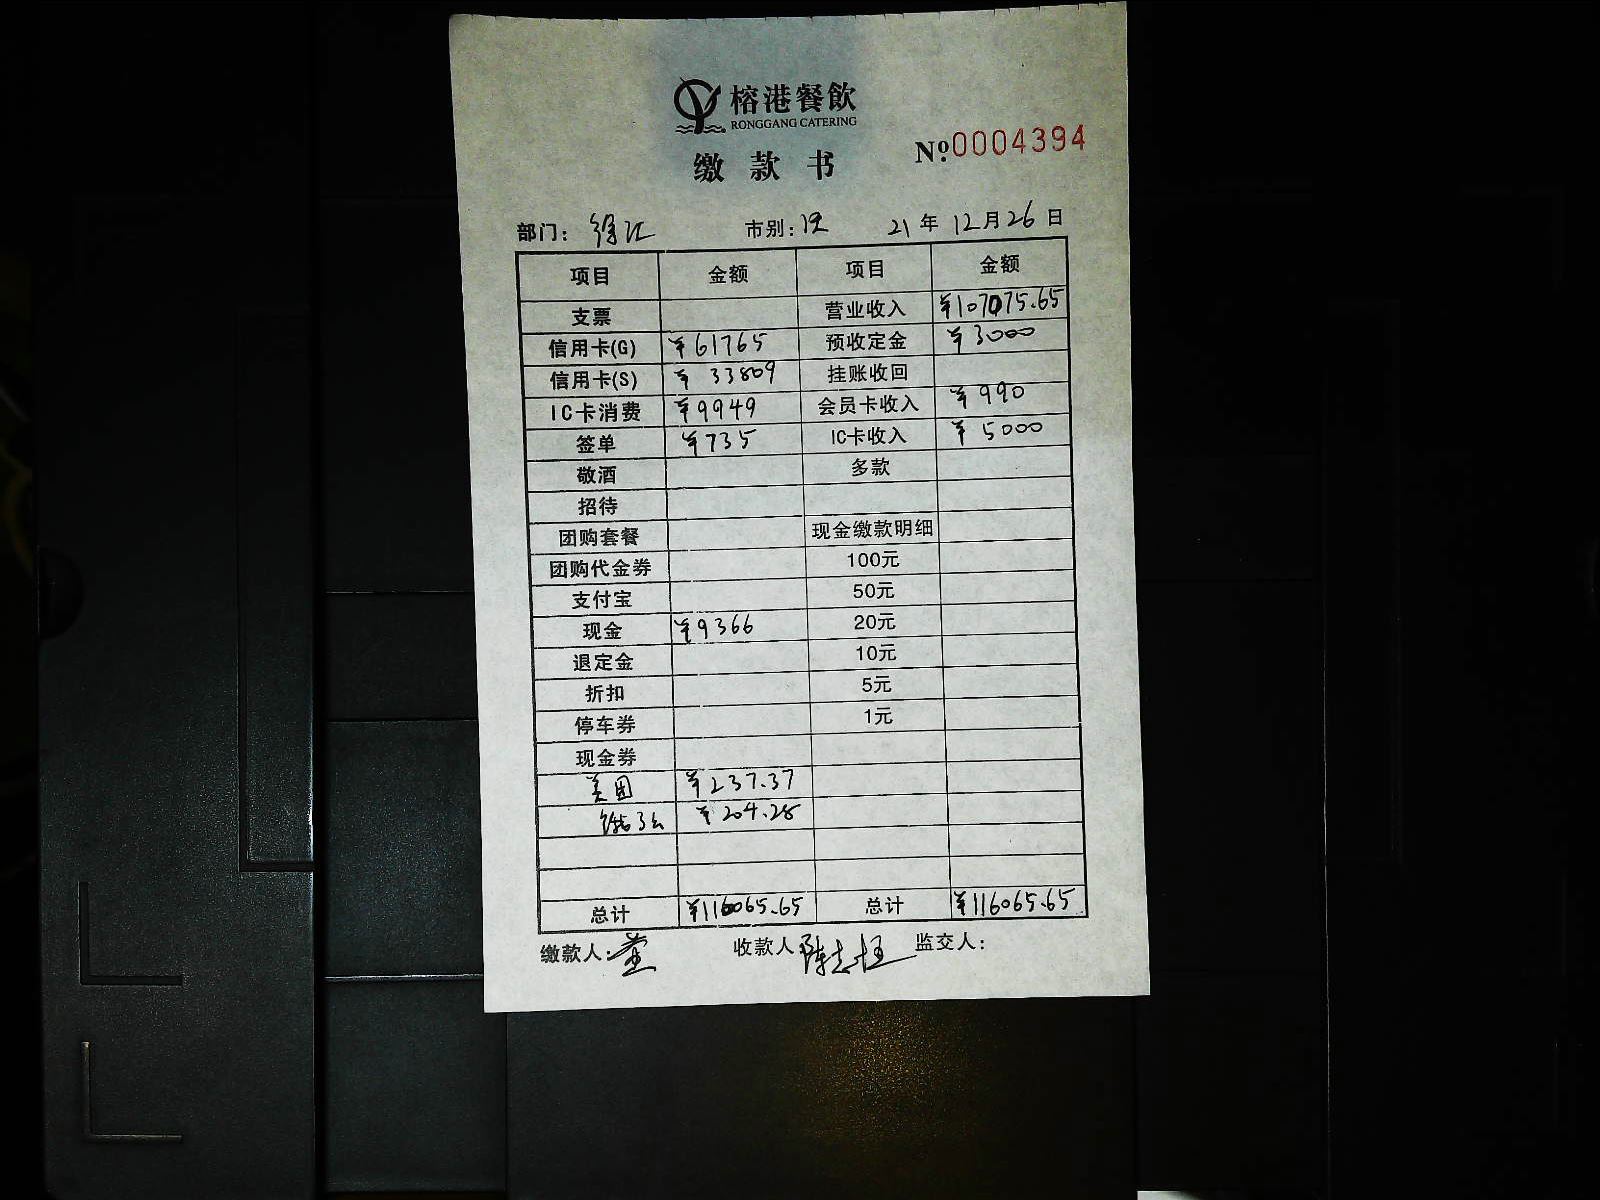 榕港餐飲
RONGGANG CATERING
缴款书
№0004394
部门: 徐汇 市别: 21年12月26日
项目 金额 项目 金额
支票 营业收入 ¥107075.65
信用卡(G) ¥61765 预收定金 ¥3000
信用卡(S) ¥33809 挂账收回
IC卡消费 ¥9949 会员卡收入 ¥990
签单 ¥735 IC卡收入 ¥5000
敬酒 多款
招待
团购套餐 现金缴款明细
团购代金券 100元
支付宝 50元
现金 ¥9366 20元
退定金 10元
折扣 5元
停车券 1元
现金券
美团 ¥237.37
¥204.28
总计 ¥116065.65 总计 ¥116065.65
缴款人: 收款人 监交人: